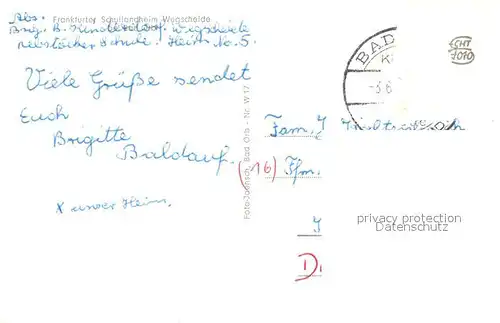 Abs. Frankfurter Schullandheim Wegscheide
Brig. B. Wegscheide
Schule. Heim No. 5.
Viele Grüße sendet
Euch
Brigitte
Baldauf.
x unser Heim.
Foto-Jännsch, Bad Orb - Nr. W 17
BAD
-5.6.
ECHT
FOTO
Fam. J
(16) Ffm.
D.
privacy protection
Datenschutz